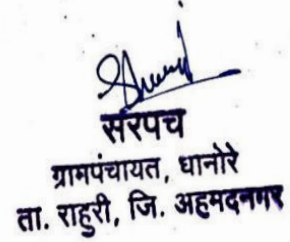 सरपच
ग्रामपंचायत, धानोरे
ता. राहुरी, जि. अहमदनगर